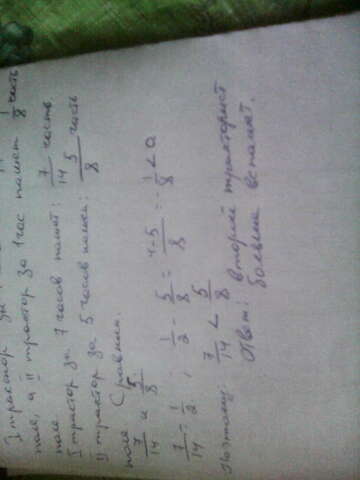 I трактор за 1
поле, а II трактор за 1 час пашет 1/8 часть
поля
I трактор за 7 часов пашет: 7/14 часть
II трактор за 5 часов пашет: 5/8 часть
поля Сравним.
7/14 и 5/8
7/14 = 1/2 ; 1/2 - 5/8 = 4-5/8 = -1/8 < 0
Поэтому: 7/14 < 5/8
Ответ: второй тракторист
больше вспашет.